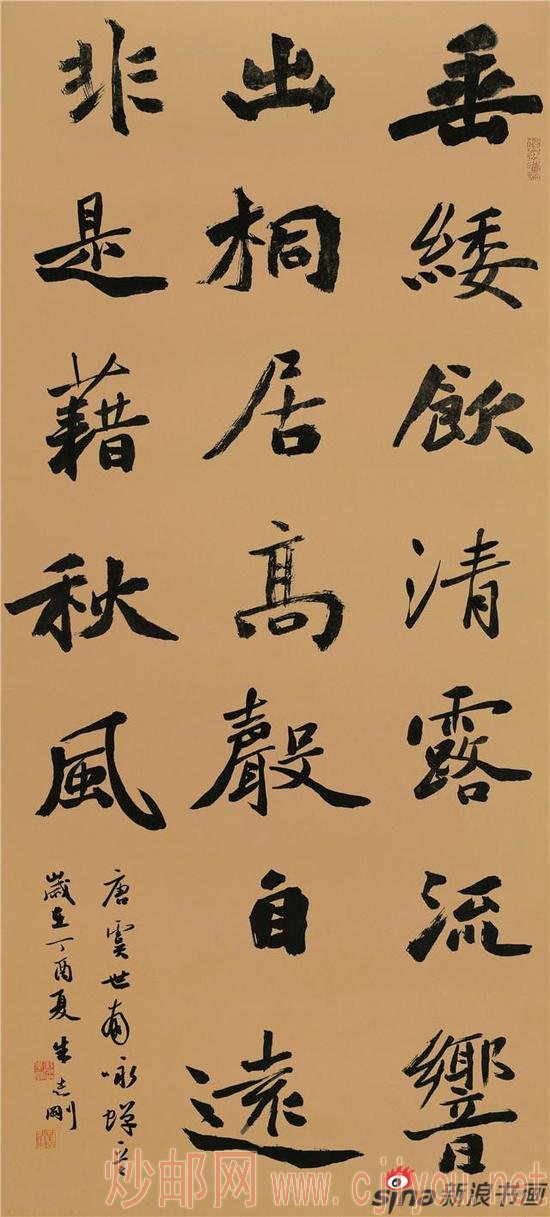 垂緌飲清露流響
出桐居高聲自遠
非是藉秋風
唐虞世南咏蟬
歲在丁酉夏朱志剛
炒邮网 www.cjiyou.net
sina新浪书画